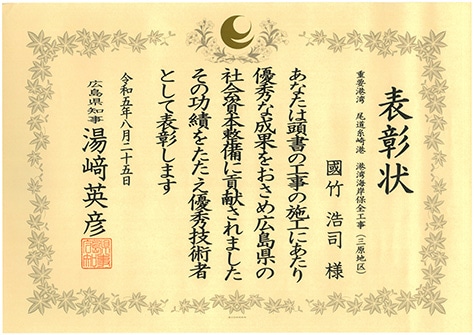 表彰状
重要港湾 尾道糸崎港 港湾海岸保全工事（三原地区）
國竹 浩司 様
あなたは頭書の工事の施工にあたり
優秀な成果をおさめ広島県の
社会資本整備に貢献されました
その功績をたたえ優秀技術者
として表彰します
令和五年八月二十五日
広島県知事 湯﨑 英彦